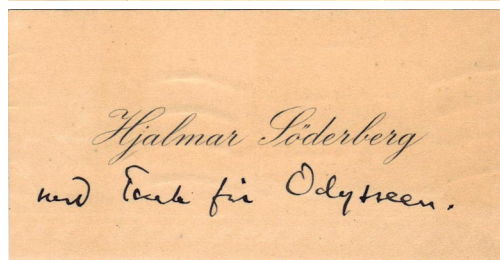 Hjalmar Söderberg
med Tack för Odysseen.